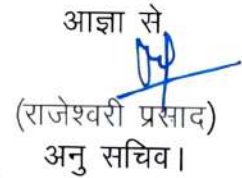 आज्ञा से
(राजेश्वरी प्रसाद)
अनु सचिव।